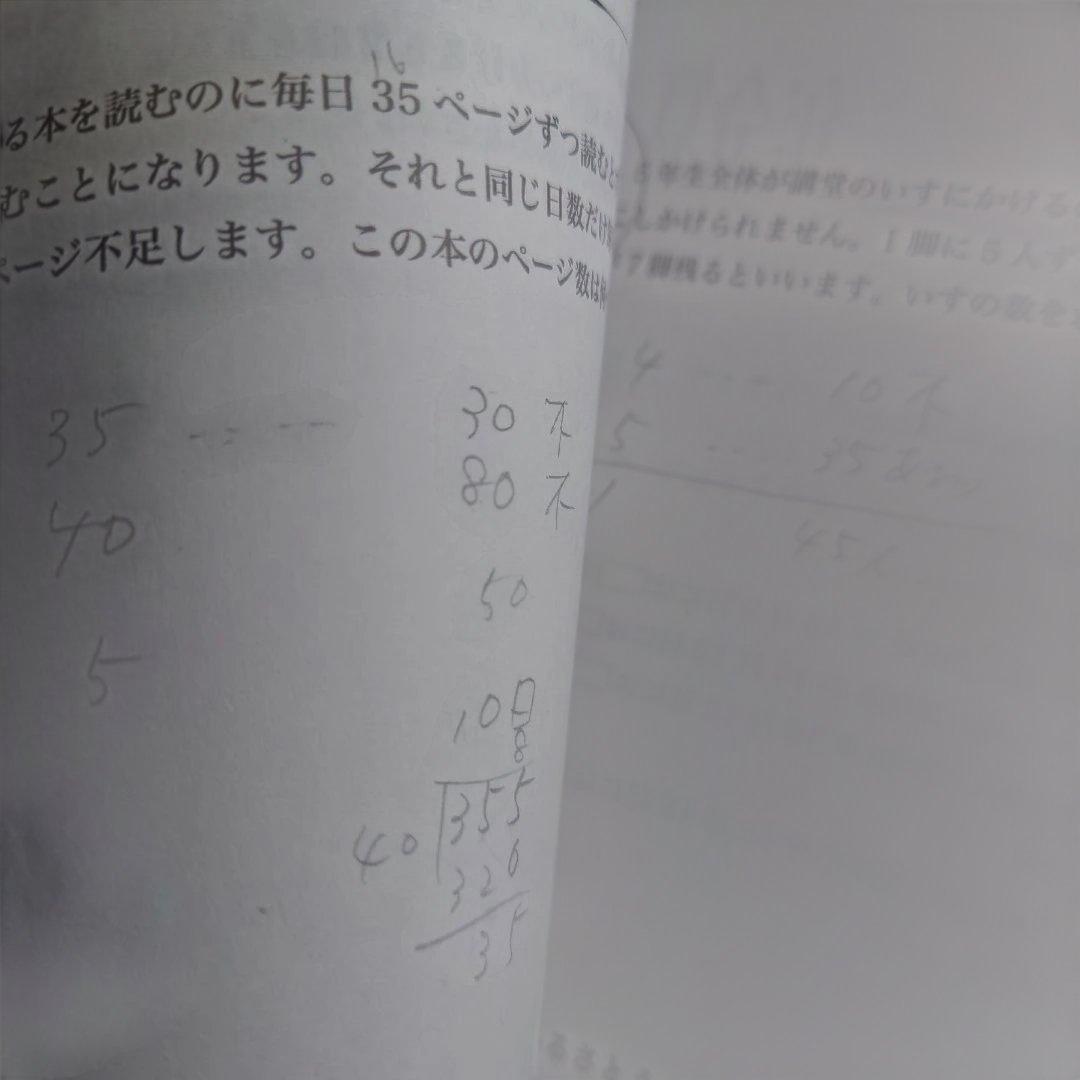 16
る本を読むのに毎日 35 ページずつ読むと
むことになります。それと同じ日数だけ
ページ不足します。この本のページ数は
35 ---- 30 不
40 80 不
5 50
10日
8
40 355
320
35
5年生全体が講堂のいすにかける
しかけられません。1脚に5人ず
7脚残るといいます。いすの数を
4 ---- 10 不
5 ---- 35
1 45人